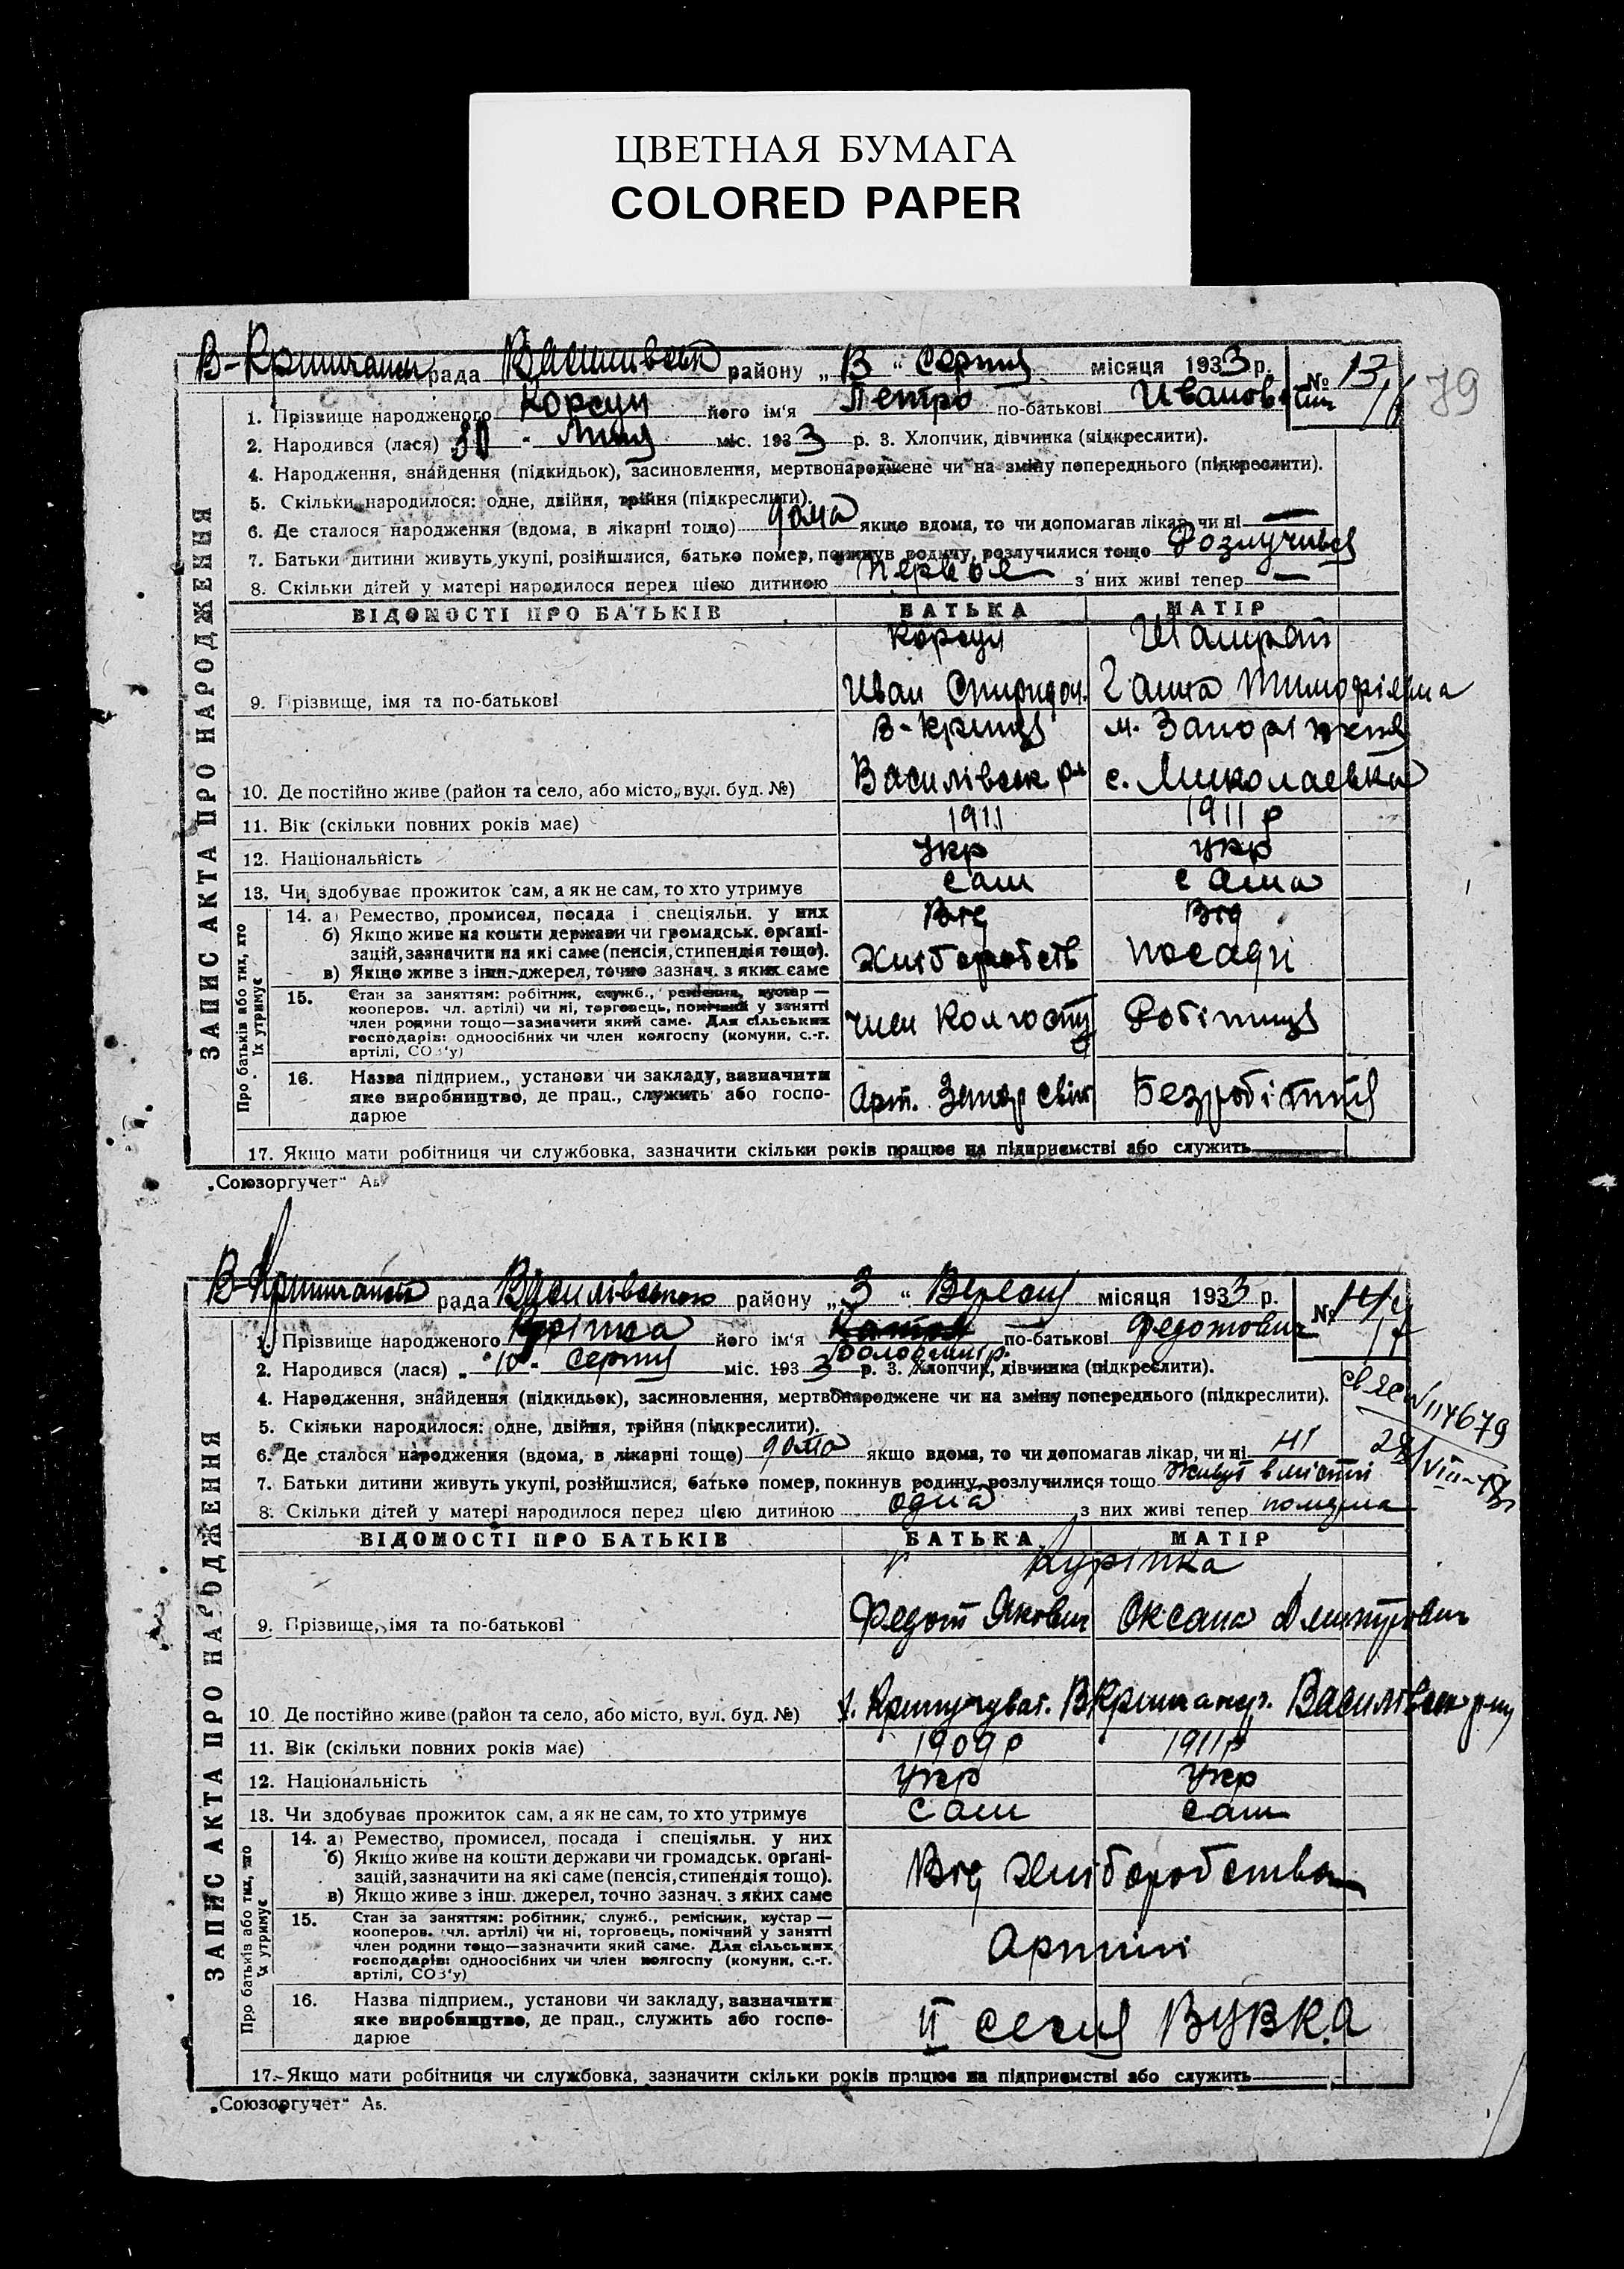 ЦВЕТНАЯ БУМАГА
COLORED PAPER
79
рада района „ В “ Серпня місяця 1933 р. № 13
1. Прізвище народженого Корсун його ім'я Петро по-батькові Иванович
2. Народився (лася) 30 - Липня міс. 1933 р. 3. Хлопчик, дівчинка (підкреслити).
4. Народження, знайдення (підкидьок), засиновлення, мертвонароджене чи на зміну попереднього (підкреслити).
5. Скільки народилося: одне, двійня, трійня (підкреслити).
6. Де сталося народження (вдома, в лікарні тощо) дома якщо вдома, то чи допомагав лікар, чи ні —
7. Батьки дитини живуть укупі, розійшлися, батько помер, покинув родину, розлучилися тощо Розлучився
8. Скільки дітей у матері народилося перед цією дитиною Первое з них живі тепер —
ЗАПИС АКТА ПРО НАРОДЖЕННЯ
ВІДОМОСТІ ПРО БАТЬКІВ БАТЬКА МАТІР
Корсун
9. Прізвище, імя та по-батькові Иван Спиридон. Ганна Тимофіївна
м. Запоріжжя
10. Де постійно живе (район та село, або місто, вул. буд. №) Василівськ р-н с. Миколаевка
11. Вік (скільки повних років має) 1911 1911 р
12. Національність Укр укр
13. Чи здобуває прожиток сам, а як не сам, то хто утримує сам сама
Про батьків або тих, хто їх утримує
14. а) Ремество, промисел, посада і спеціяльн. у них Від Від
б) Якщо живе на кошти держави чи громадськ. орґані-
зацій, зазначити на які саме (пенсія, стипендія тощо). хліборобств посади
в) Якщо живе з інш. джерел, точно зазнач. з яких саме
15. Стан за заняттям: робітник, служб., ремісник, кустар —
кооперов. чл. артілі) чи ні, торговець, помічний у занятті
член родини тощо—зазначити який саме. Для сільських член Колгоспу Робітниця
господарів: одноосібних чи член колгоспу (комуни, с.-г.
артілі, СОЗ'у)
16. Назва підприем., установи чи закладу, зазначити
яке виробництво, де прац., служить або госпо- Арт. Безробітня
дарює
17. Якщо мати робітниця чи службовка, зазначити скільки років працює на підприємстві або служить —
„Союзоргучет“ Аб.
рада Василівського району „ 3 “ Вересня місяця 1933 р. № 14
1. Прізвище народженого Курінка його ім'я по-батькові Федотович
Володимир.
2. Народився (лася) „ 10 - Серпня міс. 1933 р. 3. Хлопчик, дівчинка (підкреслити).
4. Народження, знайдення (підкидьок), засиновлення, мертвонароджене чи на зміну попереднього (підкреслити).
5. Скільки народилося: одне, двійня, трійня (підкреслити).
6. Де сталося народження (вдома, в лікарні тощо) дома якщо вдома, то чи допомагав лікар, чи ні ні
7. Батьки дитини живуть укупі, розійшлися, батько помер, покинув родину, розлучилися тощо Живут
8. Скільки дітей у матері народилося перед цією дитиною одна з них живі тепер померла
ЗАПИС АКТА ПРО НАРОДЖЕННЯ
ВІДОМОСТІ ПРО БАТЬКІВ БАТЬКА МАТІР
Курінка
9. Прізвище, імя та по-батькові Федот Якович Оксана
10. Де постійно живе (район та село, або місто, вул. буд. №) Василівськ р-ну
11. Вік (скільки повних років має) 1909 р 1911 р
12. Національність Укр Укр
13. Чи здобуває прожиток сам, а як не сам, то хто утримує сам сам
Про батьків або тих, хто їх утримує
14. а) Ремество, промисел, посада і спеціяльн. у них
б) Якщо живе на кошти держави чи громадськ. орґані-
зацій, зазначити на які саме (пенсія, стипендія тощо). Від хліборобства
в) Якщо живе з інш. джерел, точно зазнач. з яких саме
15. Стан за заняттям: робітник, служб., ремісник, кустар —
кооперов. чл. артілі) чи ні, торговець, помічний у занятті
член родини тощо—зазначити який саме. Для сільських Артілі
господарів: одноосібних чи член колгоспу (комуни, с.-г.
артілі, СОЗ'у)
16. Назва підприем., установи чи закладу, зазначити
яке виробництво, де прац., служить або госпо- II сесия ВУВКА
дарює
17. Якщо мати робітниця чи службовка, зазначити скільки років працює на підприємстві або служить —
„Союзоргучет“ Аб.